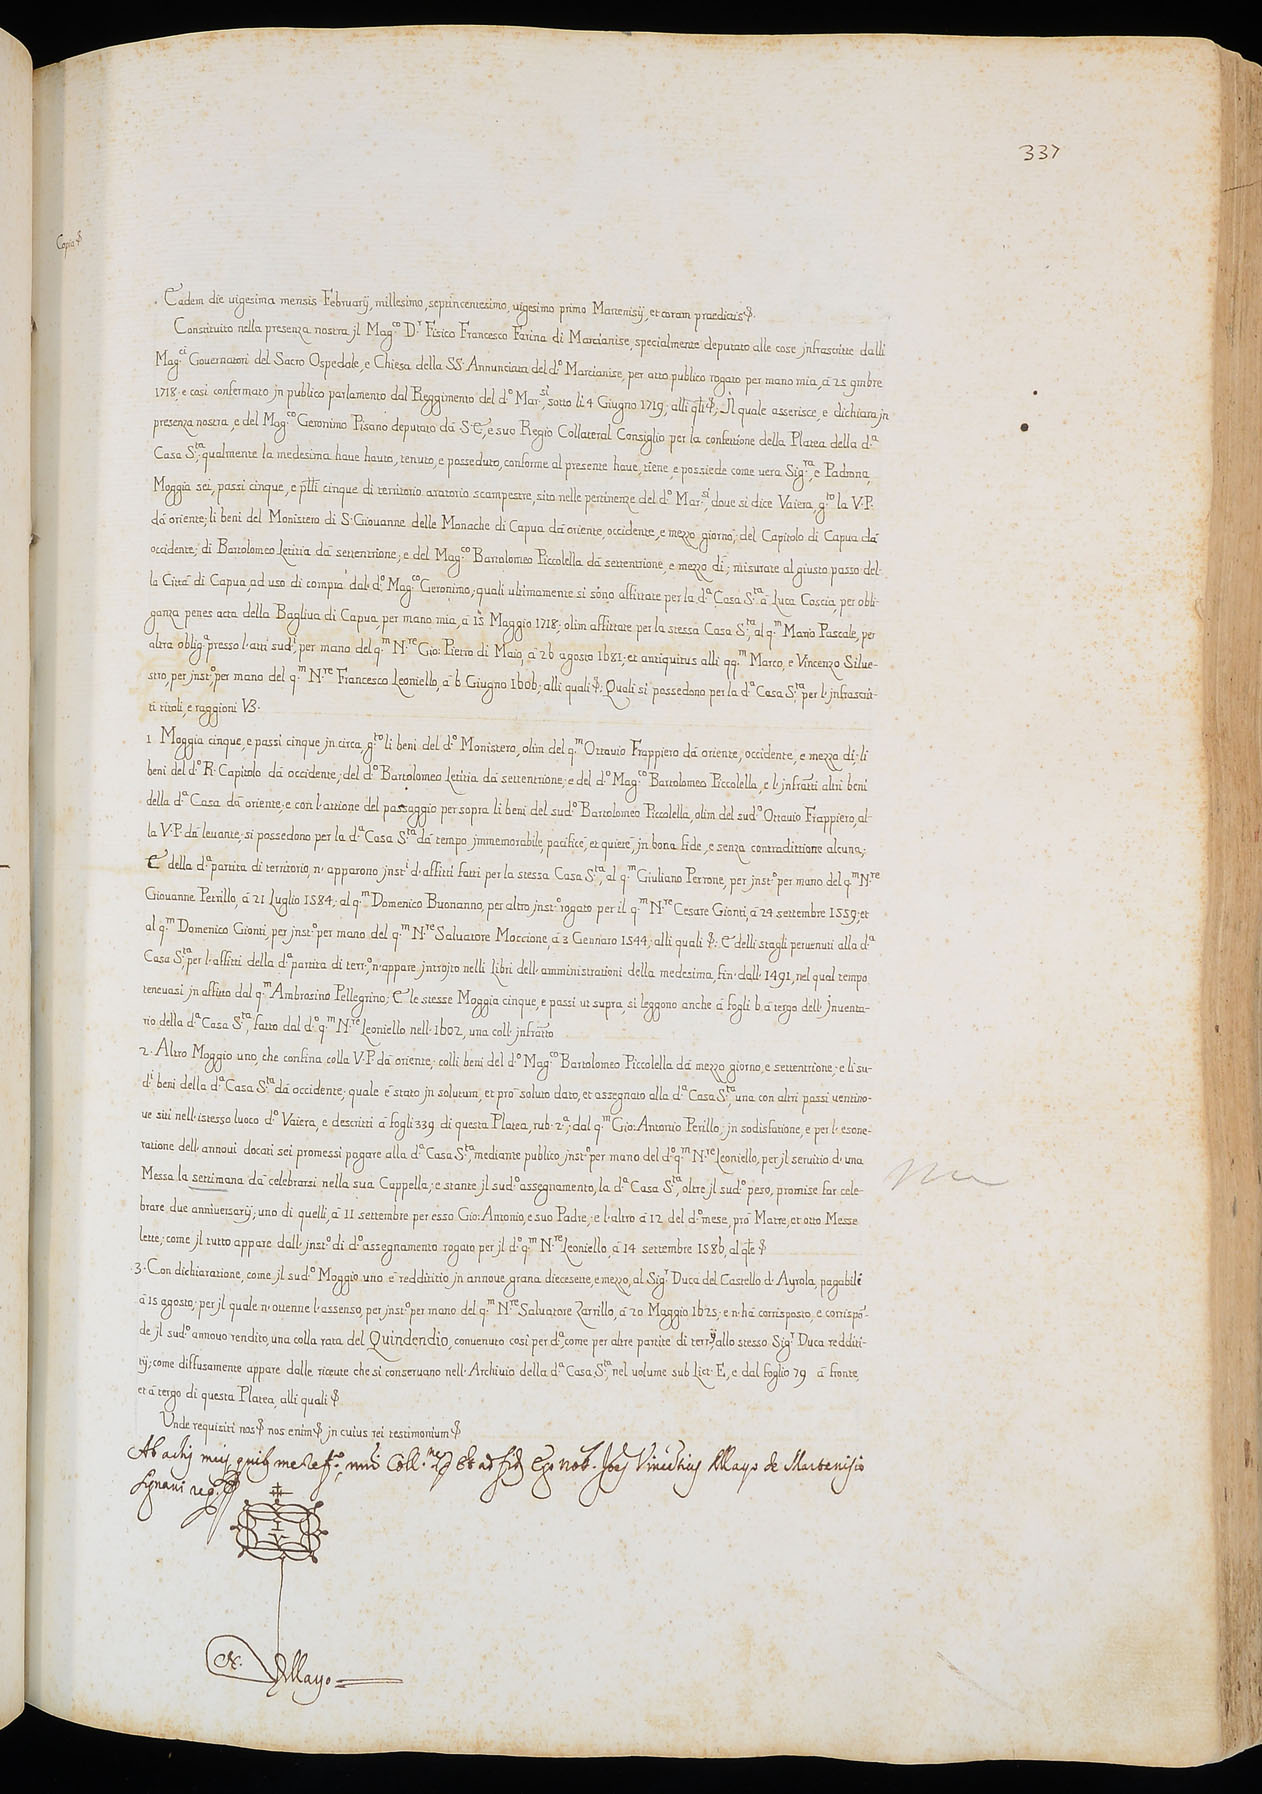 337
Copia
Eadem die uigesima mensis Februarij, millesimo, septincentesimo, uigesimo primo Martenisij, et coram praedictis
Constituito nella presenza nostra jl Mag.co D.r Fisico Francesco Farina di Marcianise, specialmente deputato alle cose jnfrascritte dalli
Mag.ci Gouernatori del Sacro Ospedale, e Chiesa della SS. Annunciata del d.o Marcianise, per atto publico rogato per mano mia, à 25 9mbre
1718. e così confermato jn publico parlamento dal Reggimento del d.o Mar.si, sotto li 4 Giugno 1719; alli q̃li; Jl quale asserisce, e dichiara jn
presenza nostra, e del Mag.co Geronimo Pisano deputato dà S.E., e suo Regio Collateral Consiglio per la confettione della Platea della d.a
Casa S.ta, qualmente la medesima haue hauto, tenuto, e posseduto, conforme al presente haue, tiene, e possiede come uera Sig.ra, e Padrona,
Moggia sei, passi cinque, e p̃tti cinque di territorio aratorio scampestre, sito nelle pertinenze del d.o Mar.si, doue si dice Vaiera, g.to la V.P.
dà oriente; li beni del Monistero di S. Giouanne delle Monache di Capua dà oriente, occidente, e mezzo giorno; del Capitolo di Capua dà
occidente; di Bartolomeo Letitia dà settentrione; e del Mag.co Bartolomeo Piccolella dà settentrione, e mezzo dì; misurate al giusto passo del-
la Città di Capua, ad uso di compra dal d.o Mag.co Geronimo; quali ultimamente si sono affittate per la d.a Casa S.ta à Luca Coscia, per obli-
ganza penes acta della Bagliua di Capua, per mano mia, à 15 Maggio 1718; olim affittate per la stessa Casa S.ta, al q.m Mario Pascale, per
altra oblig.a presso l'atti sud.i, per mano del q.m N.re Gio: Pietro di Maio, à 26 agosto 1681; et antiquitus alli qq.m Marco, e Vincenzo Silue-
stro, per jnst.o per mano del q.m N.re Francesco Leoniello, à 6 Giugno 1606; alli quali. Quali si possedono per la d.a Casa S.ta per l'jnfrascrit-
ti titoli, e raggioni VB.
1 Moggia cinque, e passi cinque jn circa, g.to li beni del d.o Monistero, olim del q.m Ottauio Frappiero dà oriente, occidente, e mezzo dì; li
beni del d.o R. Capitolo dà occidente; del d.o Bartolomeo Letitia dà settentrione; e del d.o Mag.co Bartolomeo Piccolella, e l'jnfratti altri beni
della d.a Casa dà oriente; e con l'attione del passaggio per sopra li beni del sud.o Bartolomeo Piccolella, olim del sud.o Ottauio Frappiero, al-
la V.P. dà leuante; si possedono per la d.a Casa S.ta dà tempo jmmemorabile, pacificè, et quietè, jn bona fide, e senza contradittione alcuna;
E della d.a partita di territorio, n'apparono jnst.i d'affitti fatti per la stessa Casa S.ta, al q.m Giuliano Perrone, per jnst.o per mano del q.m N.re
Giouanne Petrillo, à 21 Luglio 1584; al q.m Domenico Buonanno, per altro jnst.o rogato per il q.m N.re Cesare Gionti, à 24 settembre 1559; et
al q.m Domenico Gionti, per jnst.o per mano del q.m N.re Saluatore Moccione, à 3 Gennaro 1544; alli quali: E delli stagli peruenuti alla d.a
Casa S.ta per l'affitti della d.a partita di terr.o n'appare jntrojto nelli Libri dell'amministrationi della medesima, fin dall'1491, nel qual tempo
teneuasi jn affitto dal q.m Ambrosino Pellegrino; E le stesse Moggia cinque, e passi ut supra, si leggono anche à fogli 6 à tergo dell'Jnuenta-
rio della d.a Casa S.ta, fatto dal d.o q.m N.re Leoniello nell'1602, una coll'jnfratto
2. Altro Moggio uno, che confina colla V.P. dà oriente; colli beni del d.o Mag.co Bartolomeo Piccolella dà mezzo giorno, e settentrione; e li su-
d.i beni della d.a Casa S.ta dà occidente; quale è stato jn solutum, et prò soluto dato, et assegnato alla d.a Casa S.ta, una con altri passi uentino-
ue siti nell'istesso luoco d.o Vaiera, e descritti à fogli 339 di questa Platea, rub. 2.a; dal q.m Gio: Antonio Perillo; jn sodisfatione, e per l'esone-
ratione dell'annoui docati sei promessi pagare alla d.a Casa S.ta, mediante publico jnst.o per mano del d.o q.m N.re Leoniello, per jl seruitio d'una
Messa la settimana dà celebrarsi nella sua Cappella; e stante jl sud.o assegnamento, la d.a Casa S.ta, oltre jl sud.o peso, promise far cele-
brare, due anniuersarij; uno di quelli, à 11 settembre per esso Gio: Antonio, e suo Padre; e l'altro à 12 del d.o mese, prò Matre, et otto Messe
lette; come jl tutto appare dall'jnst.o di d.o assegnamento rogato per jl d.o q.m N.re Leoniello, à 14 settembre 1586, al q̃le
3. Con dichiaratione, come jl sud.o Moggio uno è reddititio jn annoue grana diecesette, e mezzo, al Sig.r Duca del Castello d'Ayrola, pagabile
à 15 agosto; per jl quale n'ottenne l'assenso, per jnst.o per mano del q.m N.re Saluatore Zarrillo, à 20 Maggio 1625; e n'hà corrisposto, e corrispò-
de jl sud.o annouo rendito, una colla rata del Quindendio, conuenuto così per d.a, come per altre partite di terr.ij allo stesso Sig.r Duca redditi-
tij; come diffusamente appare dalle riceute che si conseruano nell'Archiuio della d.a Casa S.ta, nel uolume sub Lict. E, e dal foglio 79 à fronte,
et à tergo di questa Platea, alli quali
Unde requisiti nos nos enim jn cuius rei testimonium
Vincentius Mayo de Martenisio
Signaui
N. Mayo